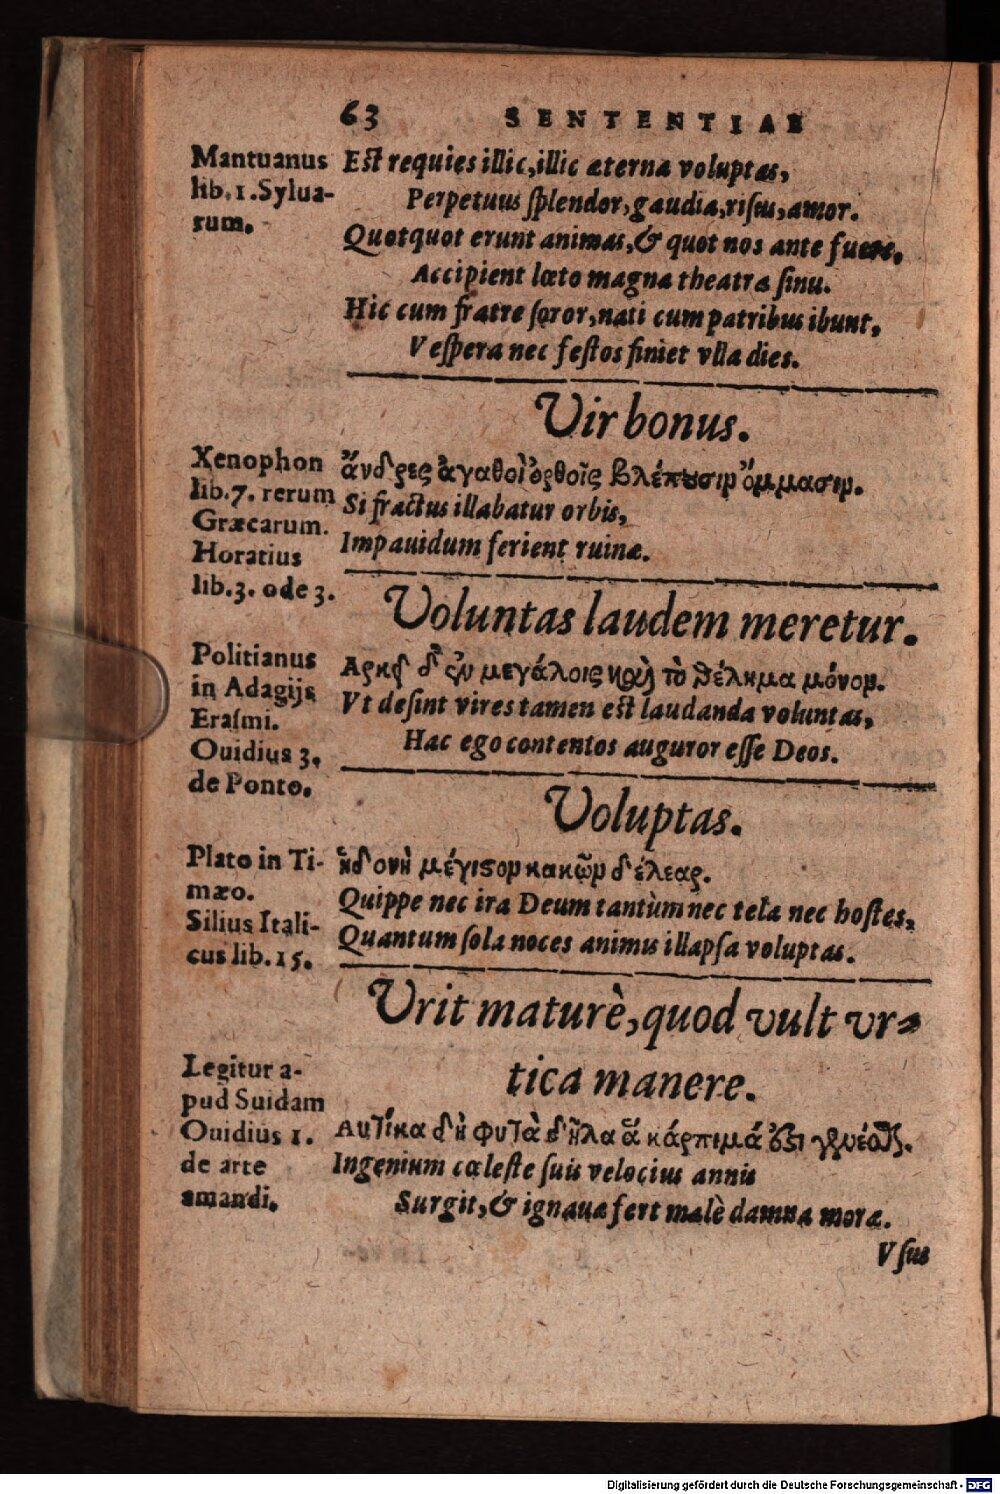 63 SENTENTIAE
Mantuanus
lib. 1. Sylua-
rum.
Est requies illic, illic æterna voluptas,
Perpetuus splendor, gaudia, risus, amor.
Quotquot erunt animas, & quot nos ante fuere,
Accipient læto magna theatra sinu.
Hic cum fratre soror, nati cum patribus ibunt,
Vespera nec festos finiet vlla dies.
Vir bonus.
Xenophon
lib. 7. rerum
Græcarum.
Horatius
lib. 3. ode 3.
ἄνδρες ἀγαθοὶ ὀρθοῖς βλέπουσιν ὄμμασιν.
Si fractus illabatur orbis,
Impauidum ferient ruinæ.
Voluntas laudem meretur.
Politianus
in Adagijs
Erasmi.
Ouidius 3.
de Ponto.
Αρκεῖ δ' ἐν μεγάλοις καὶ τὸ θέλημα μόνον.
Vt desint vires tamen est laudanda voluntas,
Hac ego contentos auguror esse Deos.
Voluptas.
Plato in Ti-
mæo.
Silius Itali-
cus lib. 15.
ἡδονὴ μέγιστον κακῶν δέλεαρ.
Quippe nec ira Deum tantùm nec tela nec hostes,
Quantum sola noces animis illapsa voluptas.
Vrit maturè, quod vult vr-
tica manere.
Legitur a-
pud Suidam
Ouidius 1.
de arte
amandi.
Αυτίκα δὴ φυτὰ δῆλα ἃ κάρπιμά
Ingenium cæleste suis velocius annis
Surgit, & ignauæ fert malè damna moræ.
Vsus
Digitalisierung gefördert durch die Deutsche Forschungsgemeinschaft - DFG